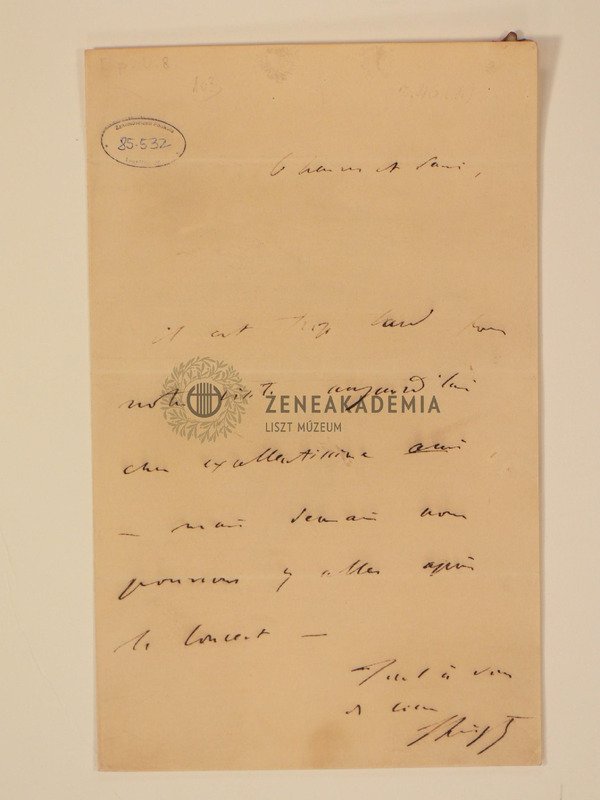 85.532
6 heures et demi,
il est trop tard pour
notre visite aujourd'hui
ZENEAKADÉMIA
LISZT MÚZEUM
cher excellentissime ami
– mais demain nous
pourrons y aller après
le Concert –
Tout à vous
de cœur
FLiszt